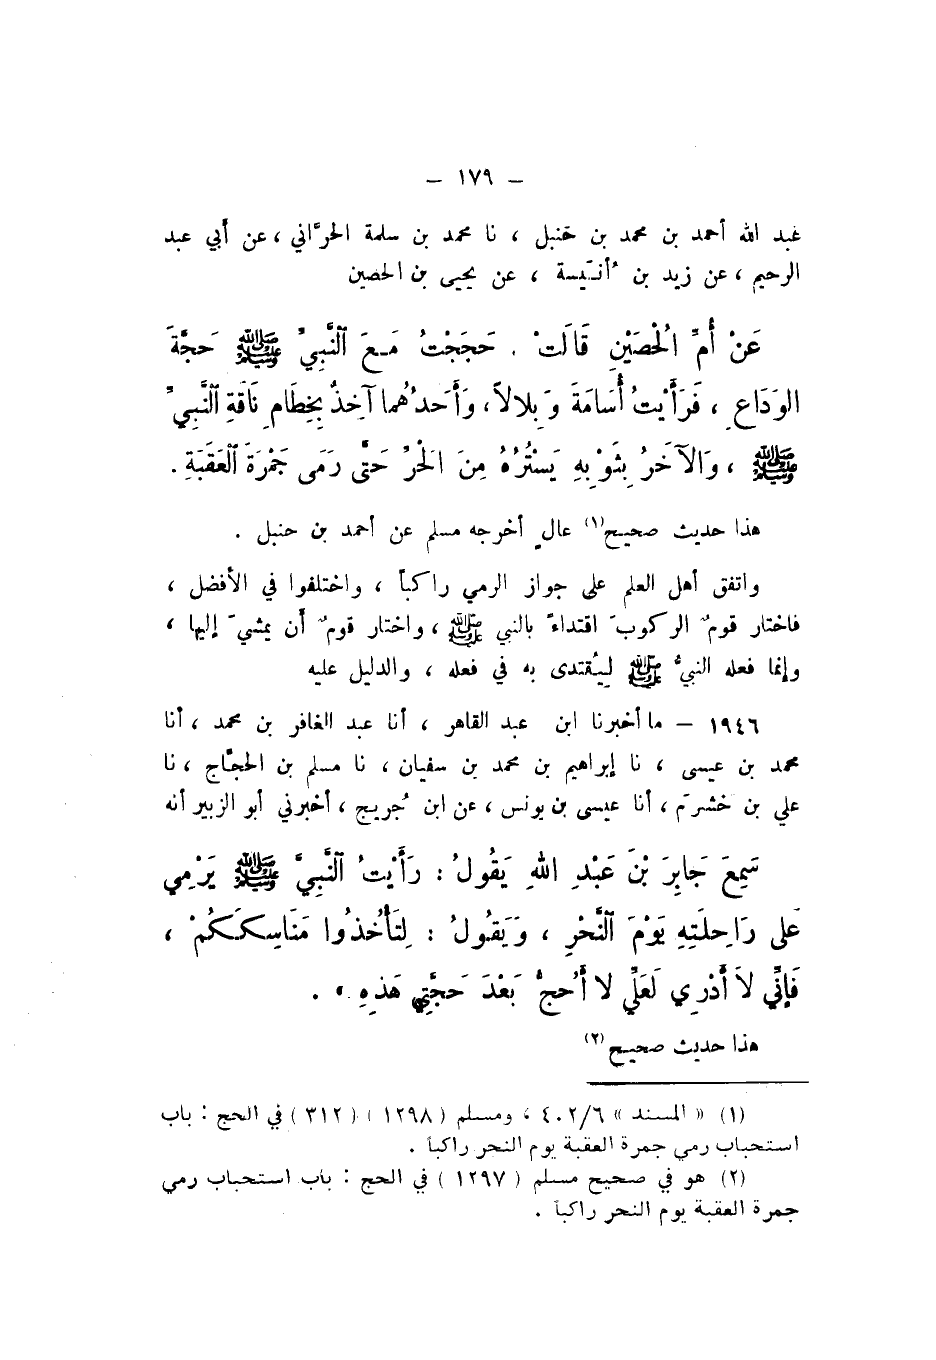 – ١٧٩ –
عبد الله أحمد بن محمد بن حنبل ، نا محمد بن سلمة الحرَّاني ، عن أبي عبد
الرحيم ، عن زيد بن أُنَيسة ، عن يحيى بن الحصين
عَنْ أُمِّ الْحُصَيْنِ قَالَتْ . حَجَجْتُ مَعَ ٱلنَّبِيِّ ﷺ حَجَّةَ
الوَدَاعِ ، فَرَأَيْتُ أُسَامَةَ وَبِلالاً ، وَأَحَدُهُما آخِذٌ بِخِطَامِ نَاقَةِ ٱلنَّبِيِّ
ﷺ ، وَالآخَرُ بِثَوْبِهِ يَسْتُرُهُ مِنَ الْحَرِّ حَتَّى رَمَى جَمْرَةَ ٱلْعَقَبَةِ .
هذا حديث صحيح(١) عالٍ أخرجه مسلم عن أحمد بن حنبل .
واتفق أهل العلم على جواز الرمي راكباً ، واختلفوا في الأفضل ،
فاختار قومٌ الركوبَ اقتداءً بالنبي ﷺ ، واختار قومٌ أن يمشيَ إليها ،
وإنما فعله النبيُّ ﷺ لِيُقتدى به في فعله ، والدليل عليه
١٩٤٦ – ما أخبرنا ابن عبد القاهر ، أنا عبد الغافر بن محمد ، أنا
محمد بن عيسى ، نا إبراهيم بن محمد بن سفيان ، نا مسلم بن الحجَّاج ، نا
علي بن خشرَم ، أنا عيسى بن يونس ، عن ابن جُريج ، أخبرني أبو الزبير أنه
سَمِعَ جَابِرَ بْنَ عَبْدِ اللهِ يَقُولُ : رَأَيْتُ ٱلنَّبِيَّ ﷺ يَرْمِي
عَلى رَاحِلَتِهِ يَوْمَ ٱلنَّحْرِ ، وَيَقُولُ : لِتَأْخُذُوا مَنَاسِكَكُمْ ،
فَإِنِّي لاَ أَدْرِي لَعَلِّي لا أَحُجُّ بَعْدَ حَجَّتِي هَذِهِ » .
هذا حديث صحيح(٢)
(١) « المسند » ٤٠٢/٦ ، ومسلم ( ١٢٩٨ ) ( ٣١٢ ) في الحج : باب
استحباب رمي جمرة العقبة يوم النحر راكباً .
(٢) هو في صحيح مسلم ( ١٢٩٧ ) في الحج : باب استحباب رمي
جمرة العقبة يوم النحر راكباً .